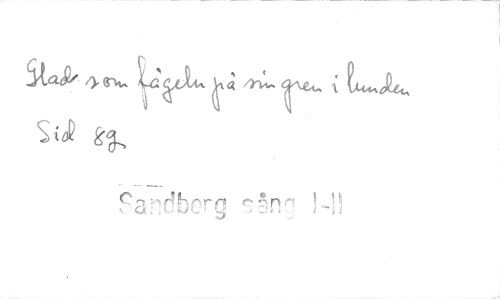 Glad som fågeln på sin gren i lunden
Sid 89
Sandberg sång I-II